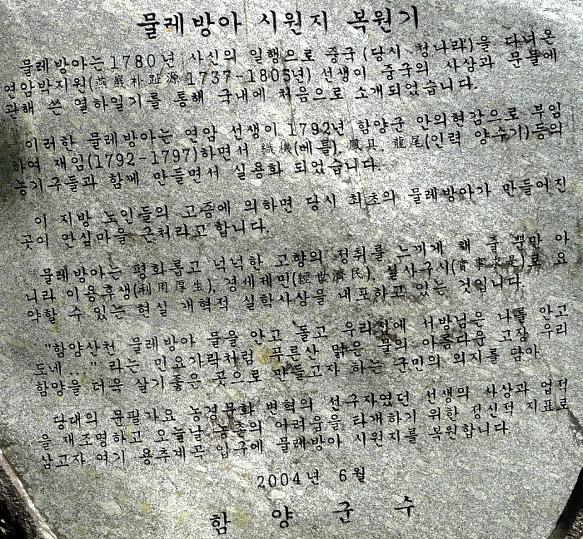 물레방아 시원지 복원기
물레방아는 1780년 사신의 일행으로 중국(당시 청나라)을 다녀온
연암박지원(燕巖朴趾源 1737-1805년) 선생이 중국의 사상과 문물에
관해 쓴 열하일기를 통해 국내에 처음으로 소개되었습니다.
이러한 물레방아는 연암 선생이 1792년 함양군 안의현감으로 부임
하여 재임(1792-1797)하면서 織機(베틀), 風具, 龍尾(인력 양수기)등의
농기구들과 함께 만들면서 실용화 되었습니다.
이 지방 노인들의 고증에 의하면 당시 최초의 물레방아가 만들어진
곳이 안심마을 근처라고 합니다.
물레방아는 평화롭고 넉넉한 고향의 정취를 느끼게 해 줄 뿐만 아
니라 이용후생(利用厚生), 경세제민(經世濟民), 실사구시(實事求是)로 요
약할 수 있는 현실 개혁적 실학사상을 내포하고 있는 것입니다.
"함양산천 물레방아 물을 안고 돌고 우리집에 서방님은 나를 안고
도네..." 라는 민요가락처럼 푸른산 맑은 물의 아름다운 고장 우리
함양을 더욱 살기좋은 곳으로 만들고자 하는 군민의 의지를 담아
당대의 문필가요 농경문화 변혁의 선구자였던 선생의 사상과 업적
을 재조명하고 오늘날 농촌의 어려움을 타개하기 위한 정신적 지표로
삼고자 여기 용추계곡 입구에 물레방아 시원지를 복원합니다
2004년 6월
함양군수